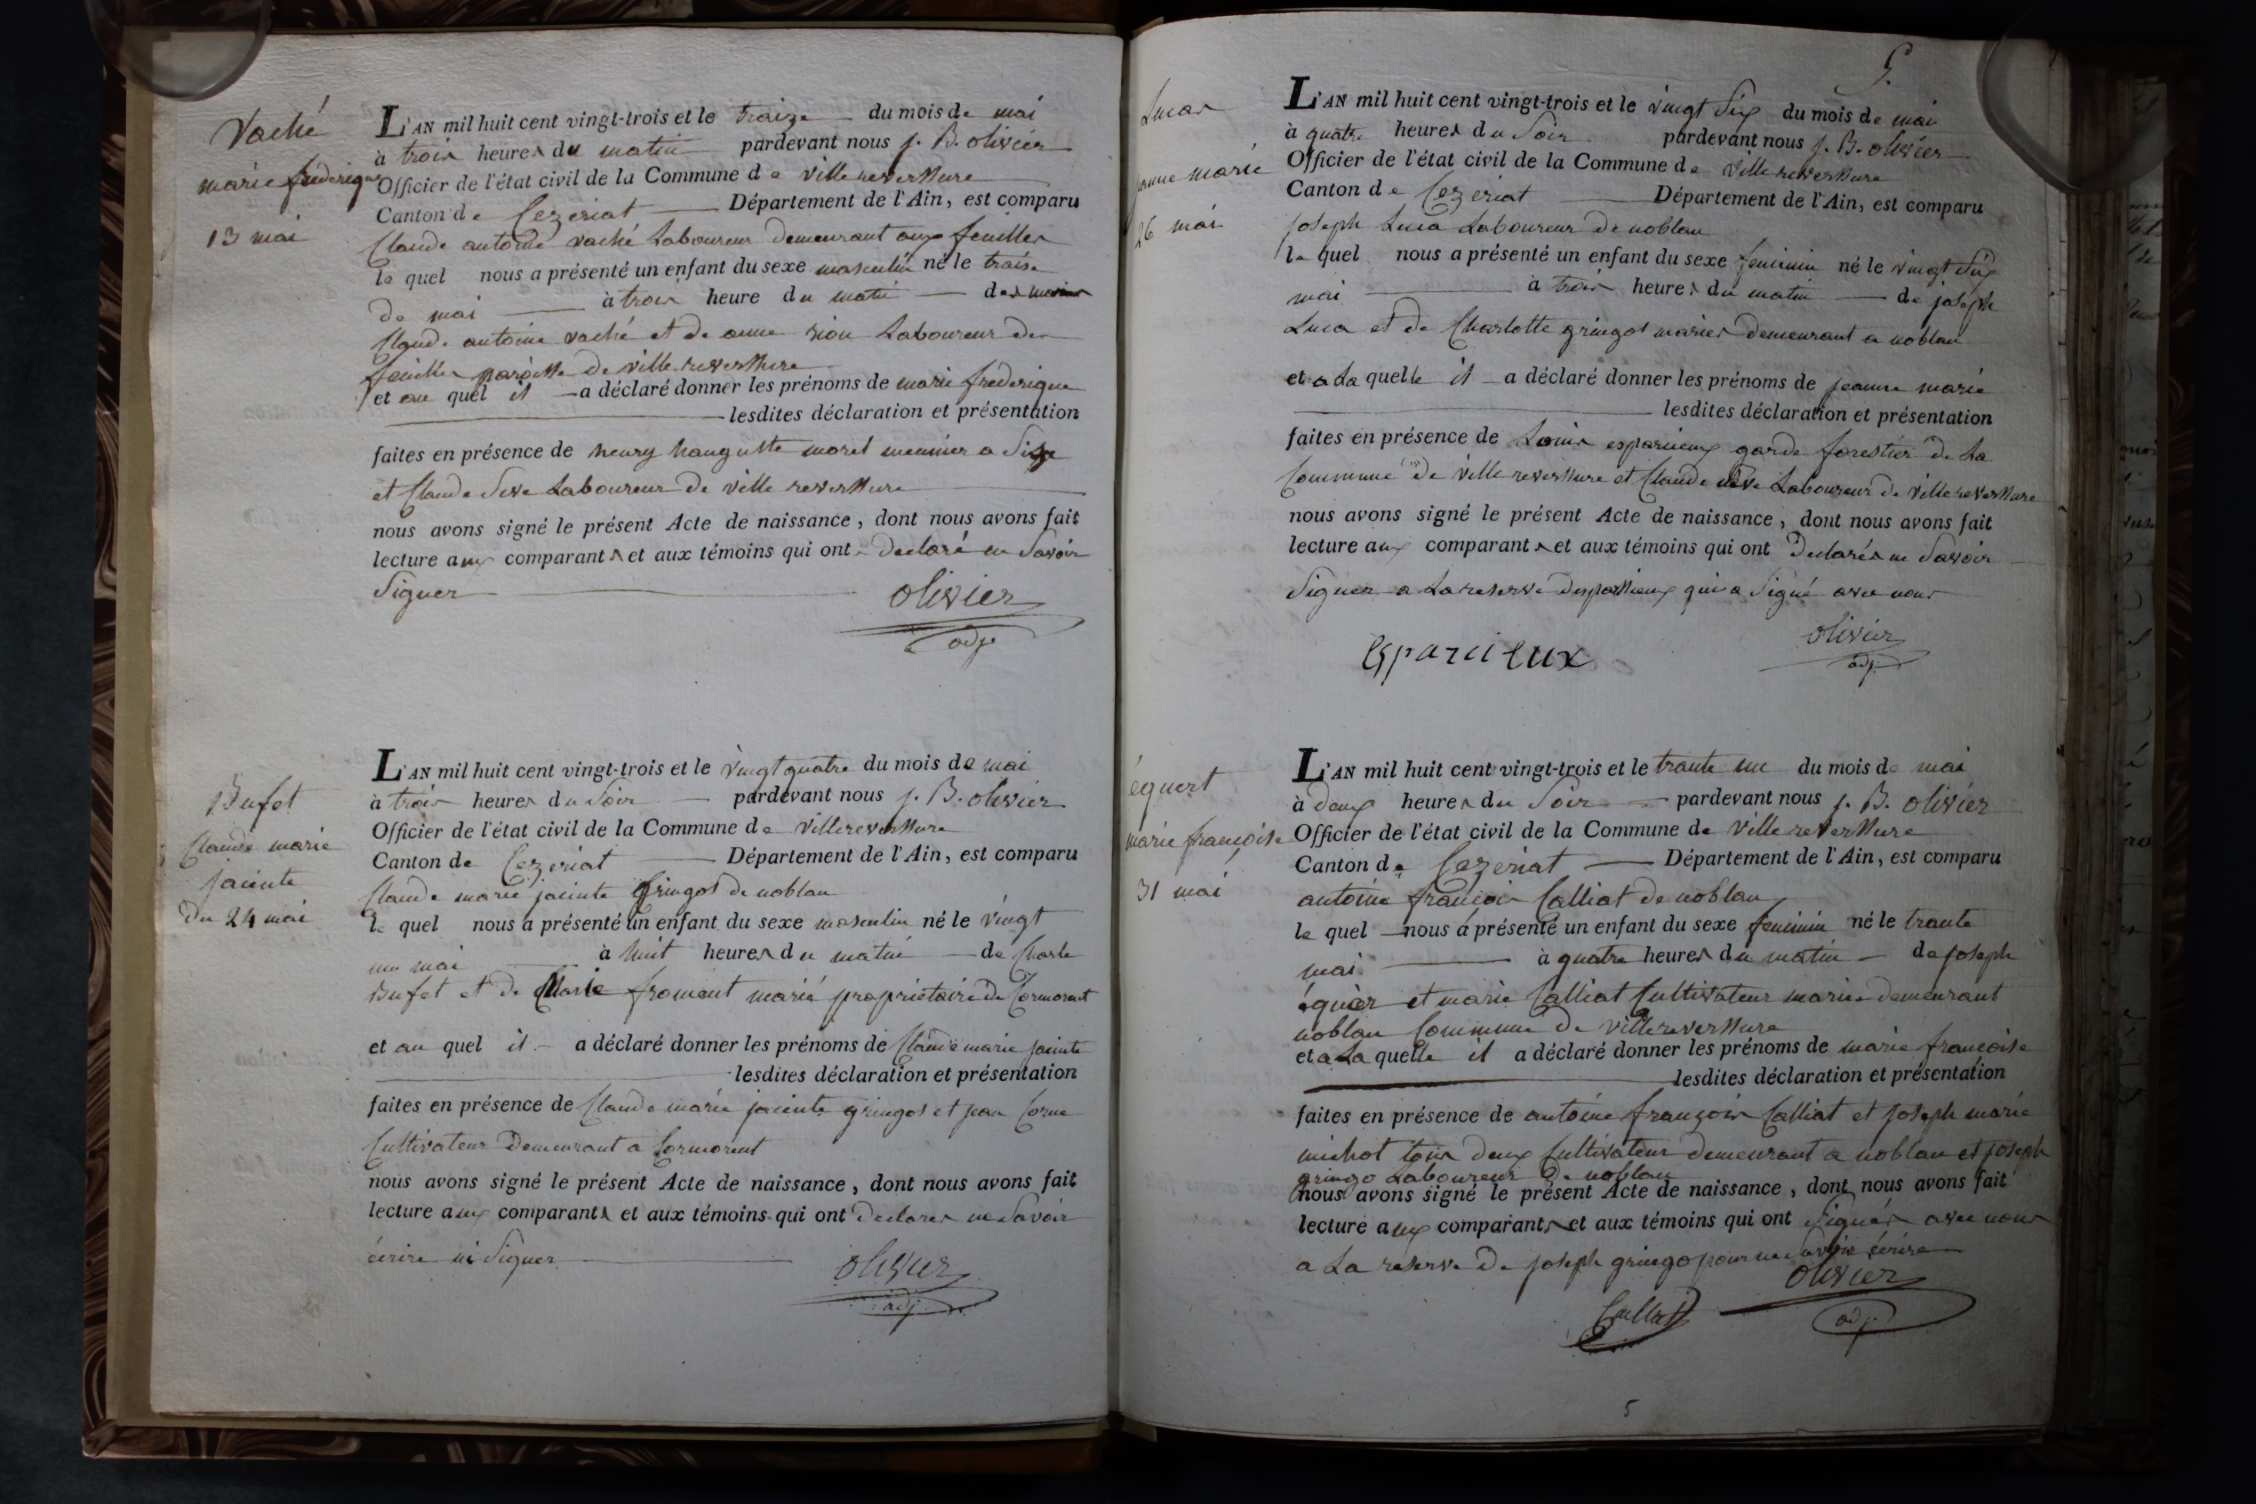 Vaché
marie frederique
13 mai
L'AN mil huit cent vingt-trois et le traize du mois de mai
à trois heures du matin pardevant nous j. B. olivier
Officier de l'état civil de la Commune de villereverssure
Canton de Cezeriat Département de l'Ain, est comparu
Claude antoine vaché Laboureur demeurant aux feuilles
le quel nous a présenté un enfant du sexe masculin né le traize
de mai à trois heure du matin des mariés
Claude antoine vaché et de anne riou Laboureur des
feuilles paroisse de villereverssure
et au quel il a déclaré donner les prénoms de marie frederique
lesdites déclaration et présentation
faites en présence de henry hauguste morel meunier a Size
et Claude Seve Laboureur de ville reverssure
nous avons signé le présent Acte de naissance, dont nous avons fait
lecture aux comparants et aux témoins qui ont declaré ne Savoir
Signer
olivier
adj.
Bufet
Claude marie
jacinte
du 24 mai
L'AN mil huit cent vingt-trois et le vingt quatre du mois de mai
à trois heures du Soir pardevant nous j. B. olivier
Officier de l'état civil de la Commune de villereverssure
Canton de Cezeriat Département de l'Ain, est comparu
Claude marie jacinte gringoz de noblan
le quel nous a présenté un enfant du sexe masculin né le vingt
un mai à huit heures du matin de Charle
Bufet et de Marie froment marié propriétaire de Cormorent
et au quel il a déclaré donner les prénoms de Claude marie jacinte
lesdites déclaration et présentation
faites en présence de Claude marie jacinte gringoz et jean Corne
Cultivateur Demeurant a Cormorent
nous avons signé le présent Acte de naissance, dont nous avons fait
lecture aux comparants et aux témoins qui ont declarés ne Savoir
écrire ni Signer
olivier
adj.
5.
Lucas
jeanne marie
26 mai
L'AN mil huit cent vingt-trois et le vingt Six du mois de mai
à quatre heures du Soir pardevant nous j. B. olivier
Officier de l'état civil de la Commune de villereverssure
Canton de Cezeriat Département de l'Ain, est comparu
joseph Luca Laboureur de noblan
le quel nous a présenté un enfant du sexe feminin né le vingt Six
mai à trois heures du matin de joseph
Luca et de Charlotte gringoz mariés demeurant a noblan
et a La quelle il a déclaré donner les prénoms de jeanne marie
lesdites déclaration et présentation
faites en présence de Louis esparcieux garde forestier de La
Commune de ville reverssure et Claude Seve Laboureur de villereverssure
nous avons signé le présent Acte de naissance, dont nous avons fait
lecture aux comparants et aux témoins qui ont declarés ne Savoir
Signer a La reserve desparsieux qui a Signé avec nous
Esparcieux
olivier
adj.
équert
marie françoise
31 mai
L'AN mil huit cent vingt-trois et le trante un du mois de mai
à deux heures du Soir pardevant nous j. B. olivier
Officier de l'état civil de la Commune de ville reverssure
Canton de Cezeriat Département de l'Ain, est comparu
antoine françois Calliat de noblan
le quel nous a présenté un enfant du sexe feminin né le trante
mai à quatre heures du matin de joseph
équier et marie Calliat Cultivateur mariés demeurant
noblan Commune de villereverssure
et a La quelle il a déclaré donner les prénoms de marie françoise
lesdites déclaration et présentation
faites en présence de antoine françois Calliat et joseph marie
michot tous deux Cultivateur demeurant a noblan et joseph
gringo Laboureur de noblan
nous avons signé le présent Acte de naissance, dont nous avons fait
lecture aux comparants et aux témoins qui ont Signés avec nous
a La reserve de joseph gringo pour ne Savoir écrire
olivier
adj.
Calliat
5